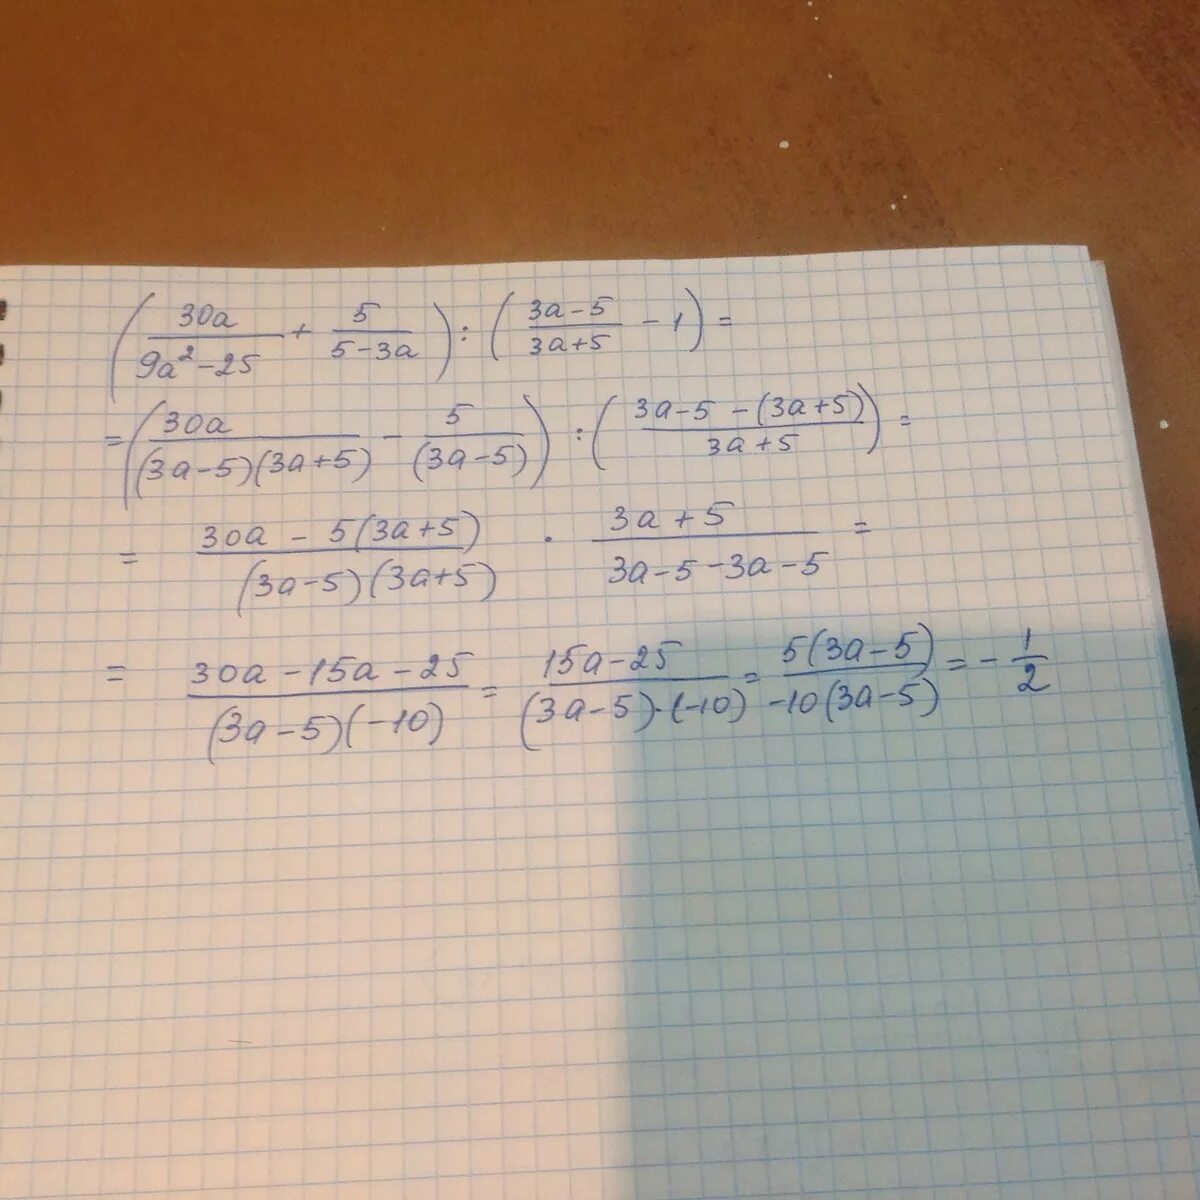 (30a/(9a²-25) + 5/(5-3a)) : ((3a-5)/(3a+5) - 1) =
= (30a/((3a-5)(3a+5)) - 5/(3a-5)) : ((3a-5-(3a+5))/(3a+5)) =
= (30a-5(3a+5))/((3a-5)(3a+5)) · (3a+5)/(3a-5-3a-5) =
= (30a-15a-25)/((3a-5)(-10)) = (15a-25)/((3a-5)·(-10)) = 5(3a-5)/(-10(3a-5)) = -1/2